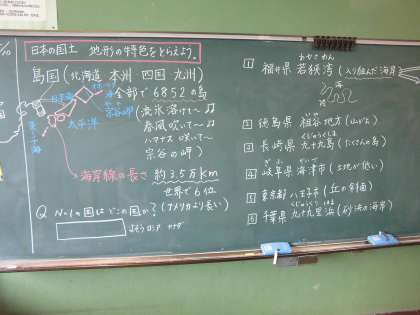 日本の国土 地形の特色をとらえよう。
島国(北海道 本州 四国 九州)
全部で6852の島
日本海
太平洋
宗谷岬
(流氷溶けて〜♫
春風吹いて〜♫
ハマナス咲いて〜
宗谷の岬)
海岸線の長さ 約3.5万km
世界で6位
(アメリカより長い)
Q No.1の国はどこの国か?
ロシア カナダ
わかさわん
1 福井県 若狭湾(入り組んだ海岸
2 徳島県 祖谷地方(山がち)
くじゅうくしま
3 長崎県 九十九島(たくさんの島)
4 岐阜県 海津市(土地が低い)
5 東京都 八王子市(丘の斜面)
6 千葉県 九十九里浜(砂浜の海岸)